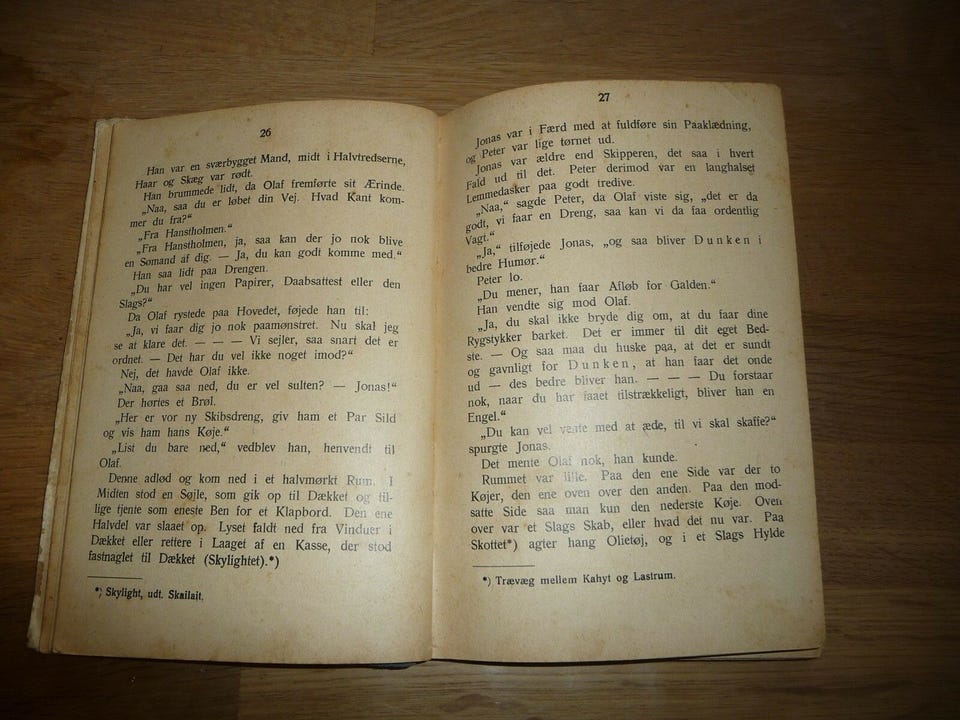 26
Han var en sværbygget Mand, midt i Halvtredserne,
Haar og Skæg var rødt.
Han brummede lidt, da Olaf fremførte sit Ærinde.
„Naa, saa du er løbet din Vej. Hvad Kant kom-
mer du fra?“
„Fra Hanstholmen.“
„Fra Hanstholmen, ja, saa kan der jo nok blive
en Sømand af dig. — Ja, du kan godt komme med.“
Han saa lidt paa Drengen.
„Du har vel ingen Papirer, Daabsattest eller den
Slags?“
Da Olaf rystede paa Hovedet, føjede han til:
„Ja, vi faar dig jo nok paamønstret. Nu skal jeg
se at klare det. — — — Vi sejler, saa snart det er
ordnet. — Det har du vel ikke noget imod?“
Nej, det havde Olaf ikke.
„Naa, gaa saa ned, du er vel sulten? — Jonas!“
Der hørtes et Brøl.
„Her er vor ny Skibsdreng, giv ham et Par Sild
og vis ham hans Køje.“
„List du bare ned,“ vedblev han, henvendt til
Olaf.
Denne adlød og kom ned i et halvmørkt Rum. I
Midten stod en Søjle, som gik op til Dækket og til-
lige tjente som eneste Ben for et Klapbord. Den ene
Halvdel var slaaet op. Lyset faldt ned fra Vinduer i
Dækket eller rettere i Laaget af en Kasse, der stod
fastnaglet til Dækket (Skylightet).*)
*) Skylight, udt. Skailait.
27
Jonas var i Færd med at fuldføre sin Paaklædning,
og Peter var lige tørnet ud.
Jonas var ældre end Skipperen, det saa i hvert
Fald ud til det. Peter derimod var en langhalset
Lemmedasker paa godt tredive.
„Naa,“ sagde Peter, da Olaf viste sig, „det er da
godt, vi faar en Dreng, saa kan vi da faa ordentlig
Vagt.“
„Ja,“ tilføjede Jonas, „og saa bliver Dunken i
bedre Humør.“
Peter lo.
„Du mener, han faar Afløb for Galden.“
Han vendte sig mod Olaf.
„Ja, du skal ikke bryde dig om, at du faar dine
Rygstykker barket. Det er immer til dit eget Bed-
ste. — Og saa maa du huske paa, at det er sundt
og gavnligt for Dunken, at han faar det onde
ud — des bedre bliver han. — — — Du forstaar
nok, naar du har faaet tilstrækkeligt, bliver han en
Engel.“
„Du kan vel vente med at æde, til vi skal skaffe?“
spurgte Jonas.
Det mente Olaf nok, han kunde.
Rummet var lille. Paa den ene Side var der to
Køjer, den ene oven over den anden. Paa den mod-
satte Side saa man kun den nederste Køje. Oven
over var et Slags Skab, eller hvad det nu var. Paa
Skottet*) agter hang Olietøj, og i et Slags Hylde
*) Trævæg mellem Kahyt og Lastrum.